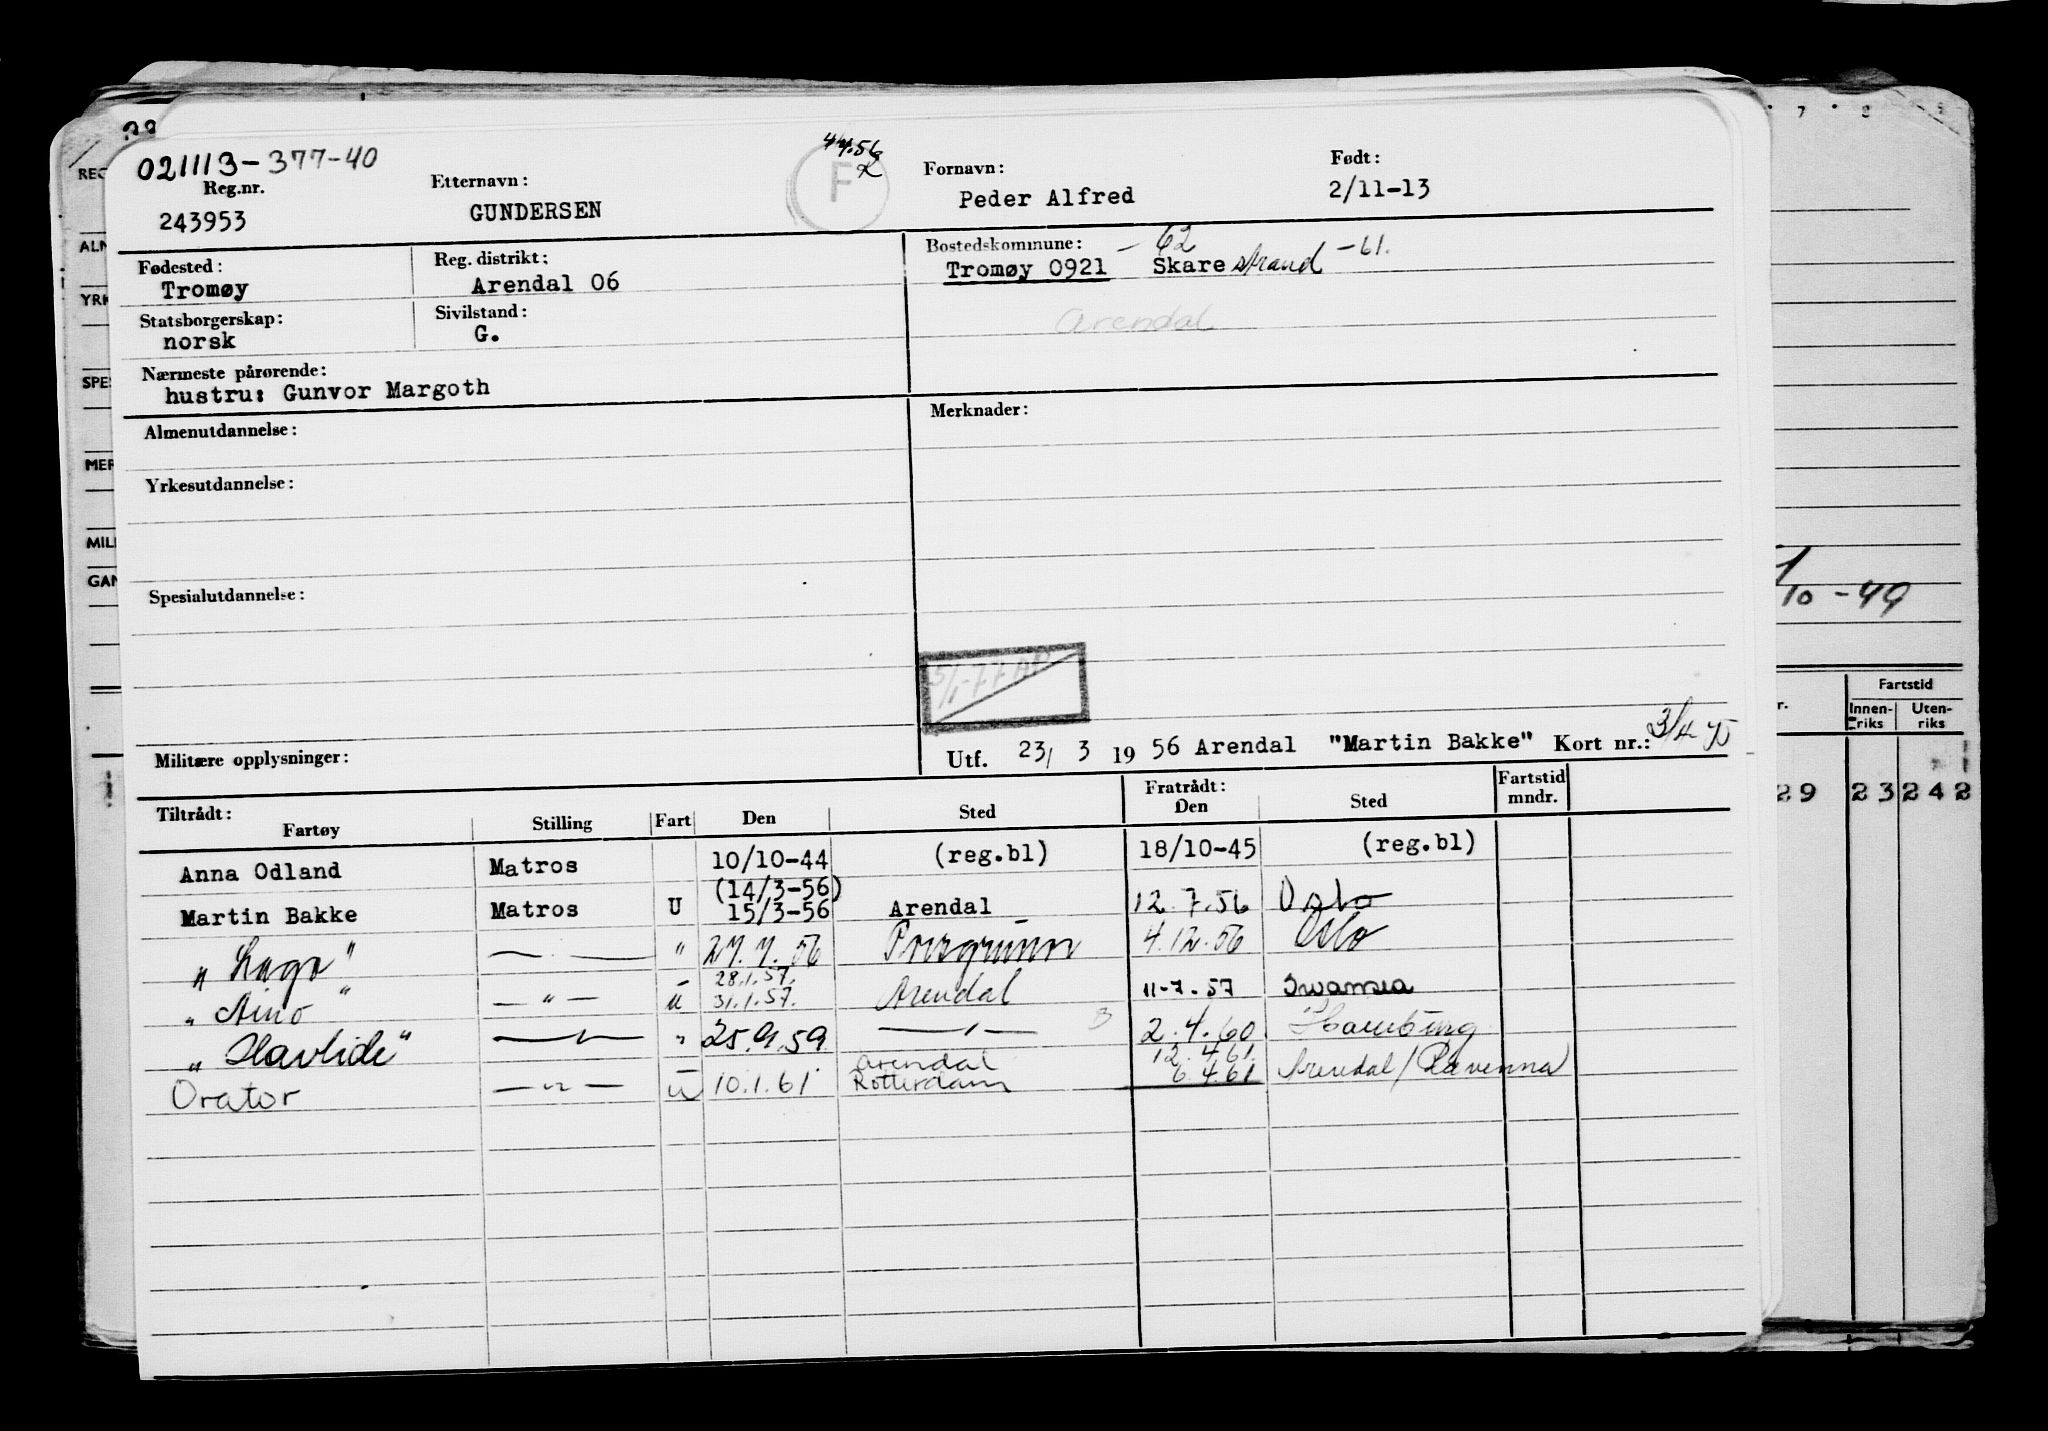 021113-377-40
Reg.nr.
243953
Etternavn:
GUNDERSEN
F
Fornavn:
Peder Alfred
Født:
2/11-13
Fødested:
Tromøy
Reg. distrikt:
Arendal 06
Bostedskommune: - 62
Tromøy 0921 Skare strand -61.
Arendal
Statsborgerskap:
norsk
Sivilstand:
G.
Nærmeste pårørende:
hustru: Gunvor Margoth
Almenutdannelse:
Merknader:
Yrkesutdannelse:
Spesialutdannelse:
Militære opplysninger:
Utf. 23/ 3 1956 Arendal "Martin Bakke" Kort nr.:
Tiltrådt: Fratrådt:
Fartøy Stilling Fart Den Sted Den Sted Fartstid mndr.
Anna Odland Matros 10/10-44 (reg.bl) 18/10-45 (reg.bl)
(14/3-56)
Martin Bakke Matros U 15/3-56 Arendal 12.7.56 Oslo
27.7.56 Porsgrunn 4.12.56 Oslo
28.1.57.
" Aino " — " — 31.1.57. Arendal 11-7.57 Swansea
" Havlide" " 25.9.59 — " — 2.4.60 Hamburg
Arendal 12.4.61.
Orator — " — U 10.1.61 Rotterdam 6.4.61 Arendal/Ravenna
REG
ALM
YRK
SPES
MER
MILI
GAN
7 8 9
/10-49
Fartstid
Innen-riks Uten-riks
29 23 242